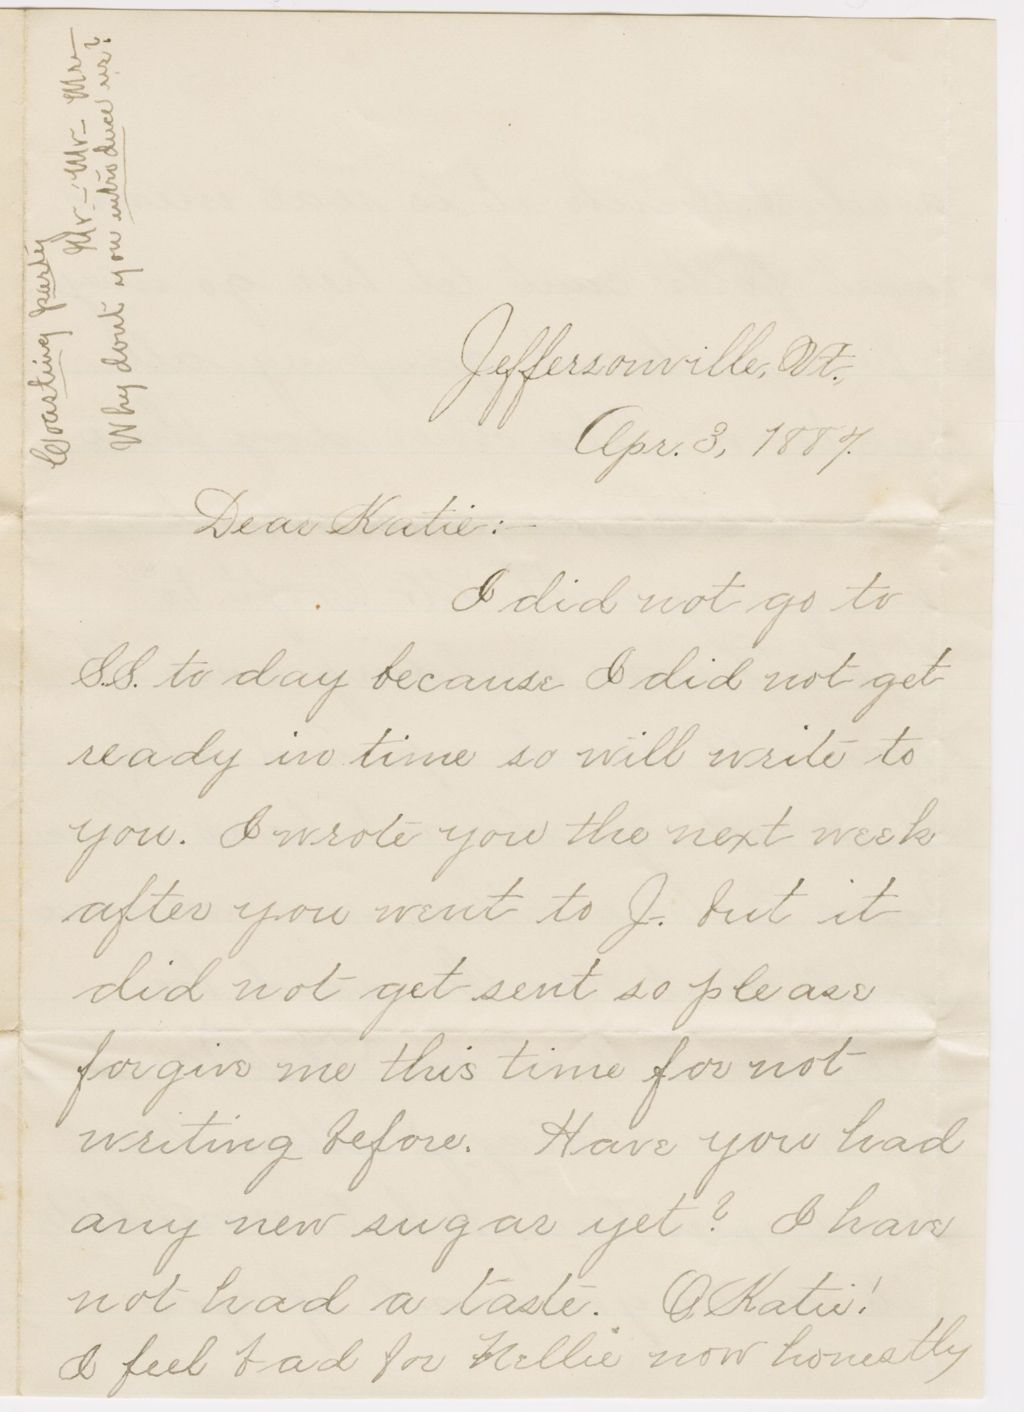 Coasting party
Mr— Mr— Mr—
Why dont you introduce us?
Jeffersonville, Vt.,
Apr. 3, 1887.
Dear Katie:—
I did not go to
S.S. to day because I did not get
ready in time so will write to
you. I wrote you the next week
after you went to J. but it
did not get sent so please
forgive me this time for not
writing before. Have you had
any new sugar yet? I have
not had a taste. O, Katie!
I feel bad for Nellie now honestly